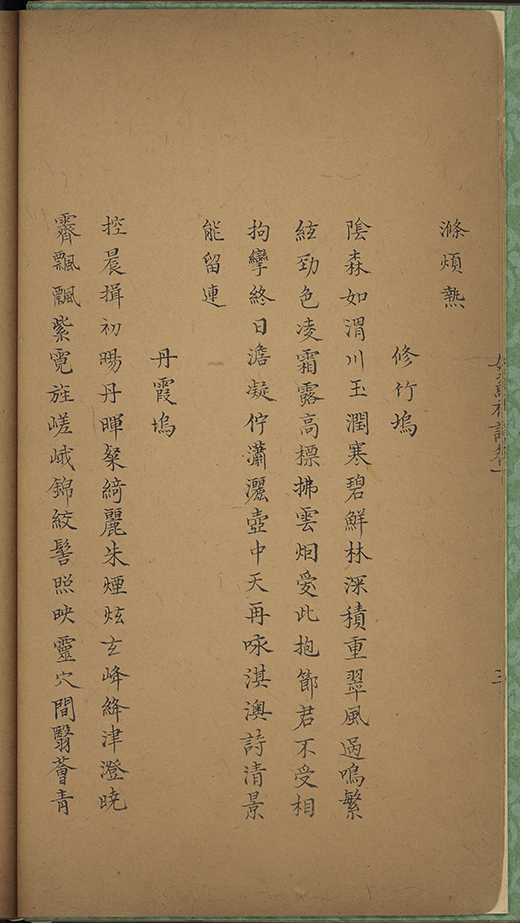 滌煩熱
修竹塢
陰森如渭川玉潤寒碧鮮林深積重翠風過鳴繁
絃勁色凌霜露高標拂雲烟愛此抱節君不受相
拘攣終日澹凝佇瀟灑壺中天再咏淇澳詩清景
能留連
丹霞塢
控晨揖初暘丹暉粲綺麗朱煙炫玄峰絳津澄曉
霽飄飄紫霓旌嵯峨錦紋髻照映靈穴間翳薈青
三